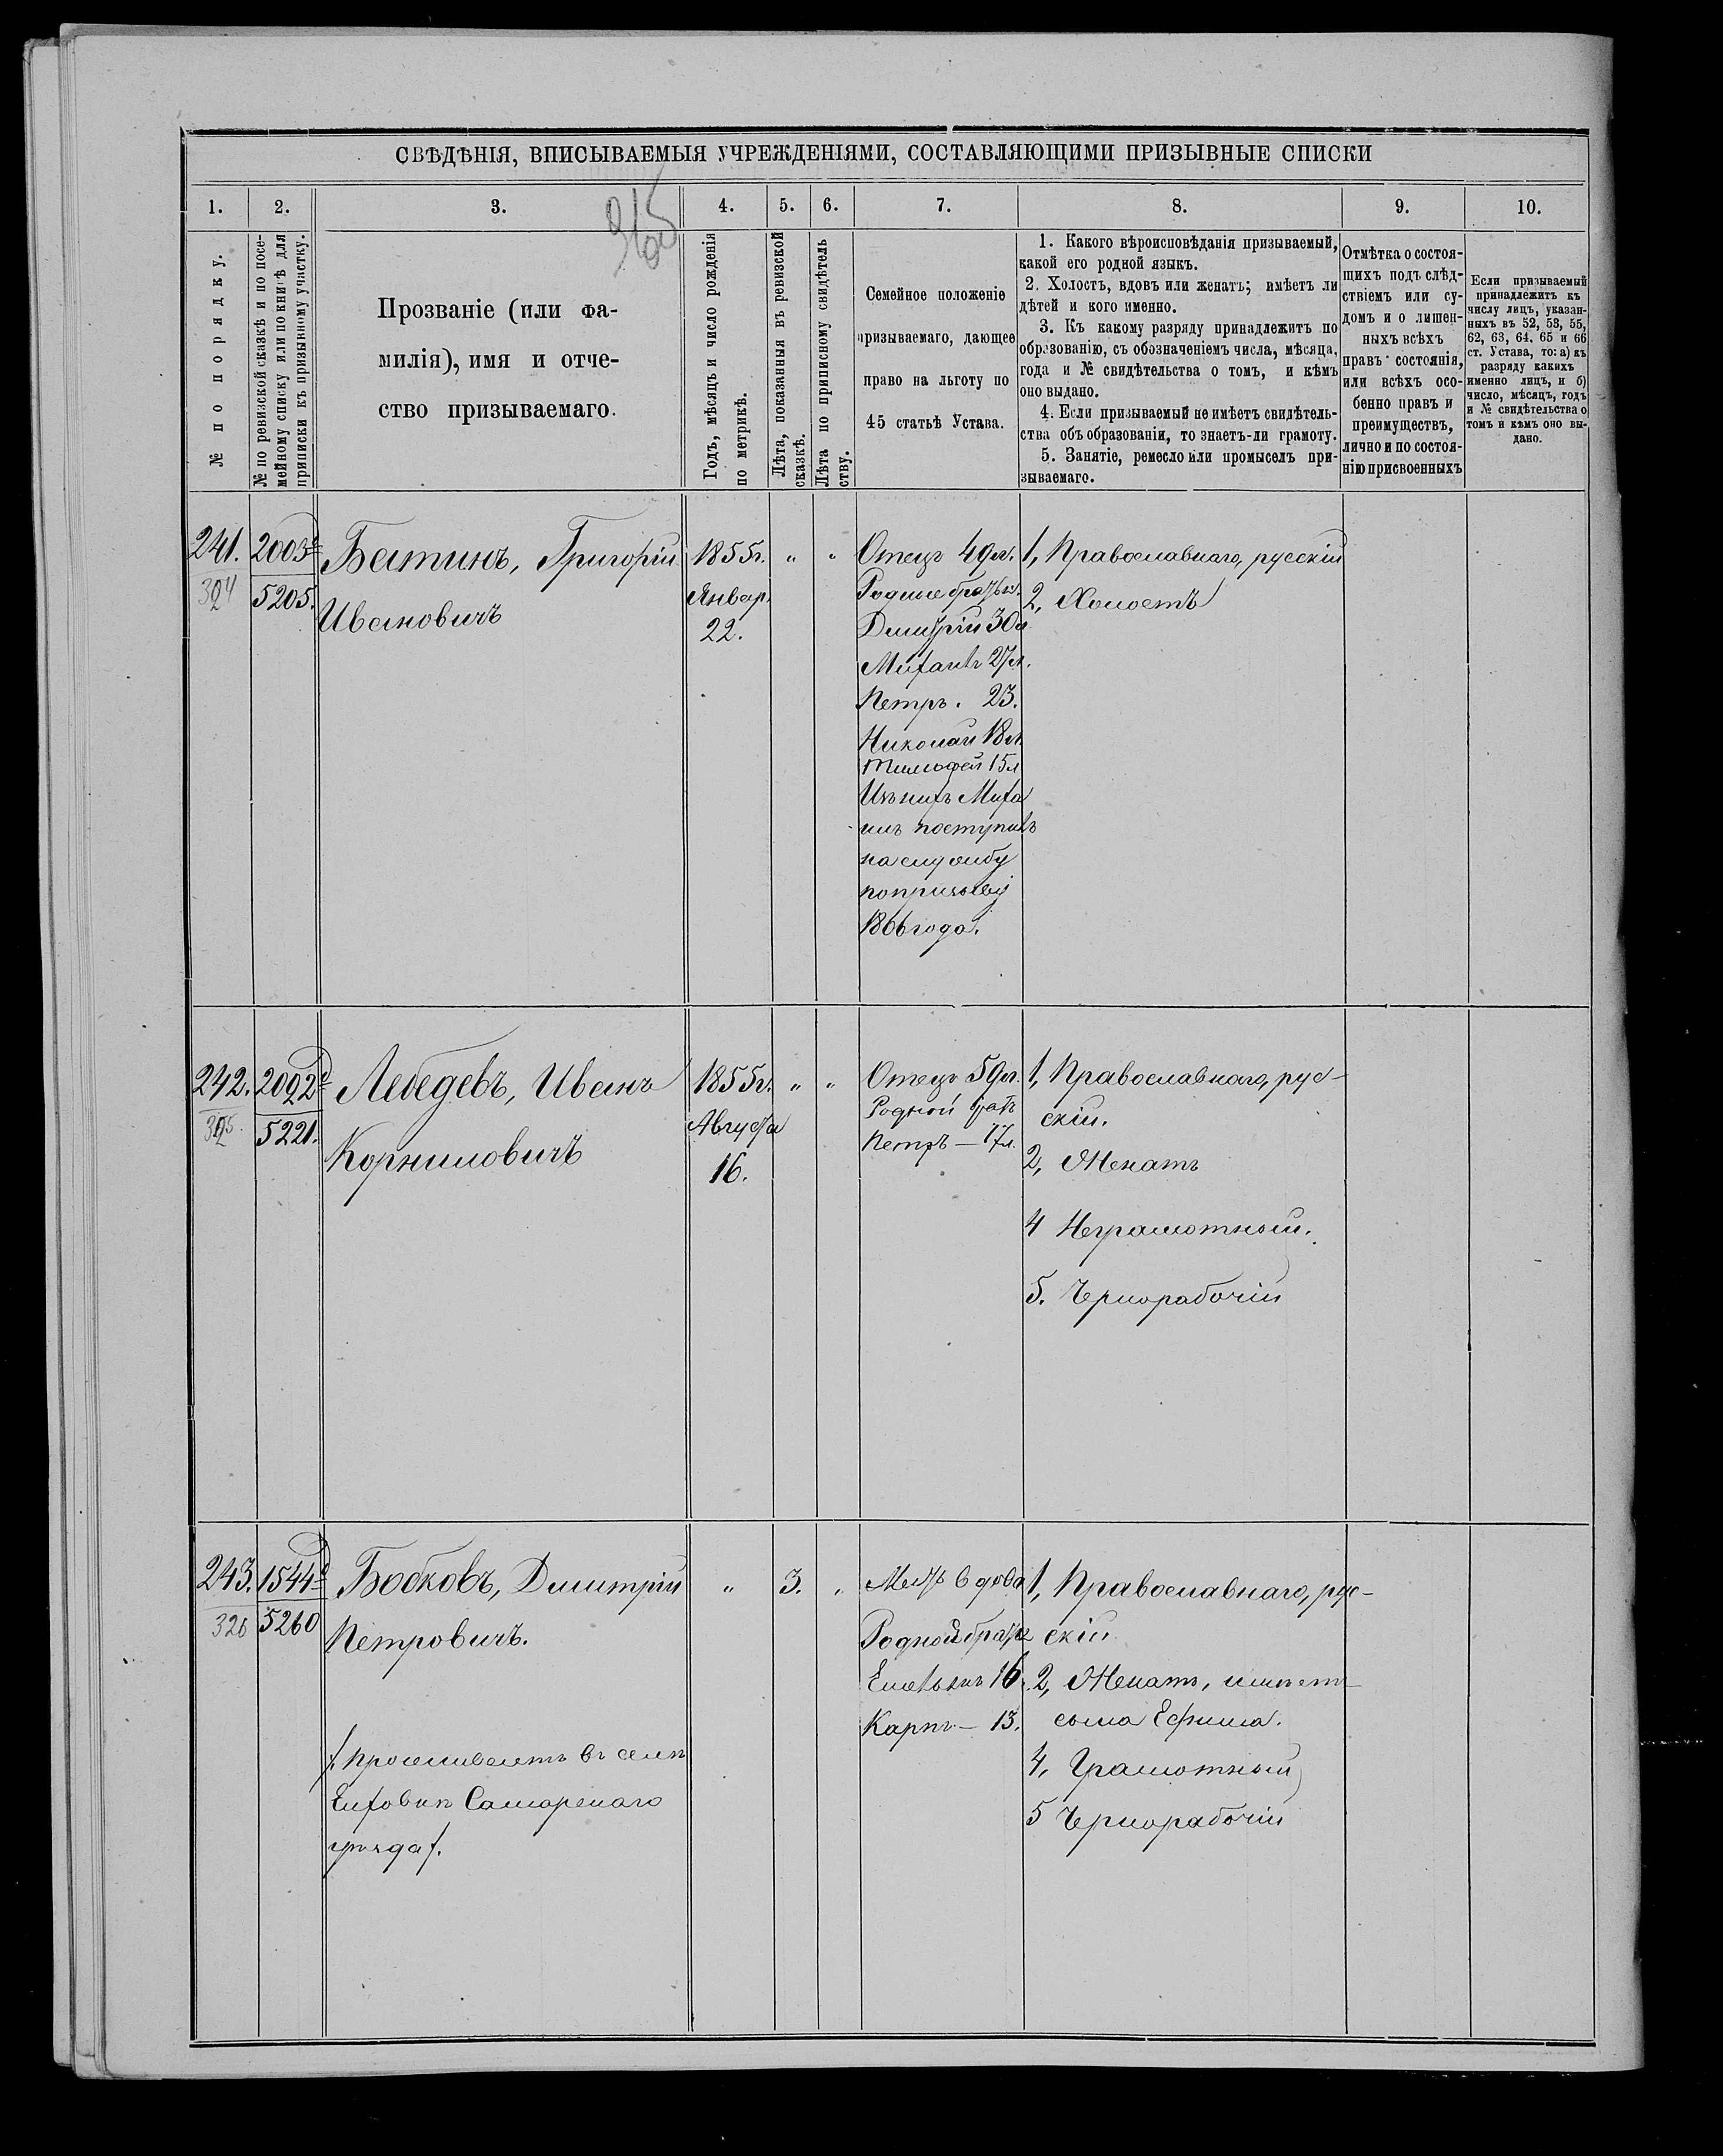 СВѢДѢНІЯ, ВПИСЫВАЕМЫЯ УЧРЕЖДЕНІЯМИ, СОСТАВЛЯЮЩИМИ ПРИЗЫВНЫЕ СПИСКИ
1.
2.
3.
4.
5.
6.
7.
8.
9.
10.
№ по порядку.
№ по ревизской сказкѣ и по посе-
мейному списку или по книгѣ для
приписки къ призывному участку.
Прозваніе (или фа-
милія), имя и отче-
ство призываемаго.
Годъ, мѣсяцъ и число рожденія
по метрикѣ.
Лѣта, показанныя въ ревизской
сказкѣ.
Лѣта по приписному свидѣтель
ству.
Семейное положеніе
призываемаго, дающее
право на льготу по
45 статьѣ Устава.
1. Какого вѣроисповѣданія призываемый,
какой его родной языкъ.
2. Холостъ, вдовъ или женатъ; имѣетъ ли
дѣтей и кого именно.
3. Къ какому разряду принадлежитъ по
образованію, съ обозначеніемъ числа, мѣсяца,
года и № свидѣтельства о томъ, и кѣмъ
оно выдано.
4. Если призываемый не имѣетъ свидѣтель-
ства объ образованіи, то знаетъ-ли грамоту.
5. Занятіе, ремесло или промыселъ при-
зываемаго.
Отмѣтка о состоя-
щихъ подъ слѣд-
ствіемъ или су-
домъ и о лишен-
ныхъ всѣхъ
правъ состоянія,
или всѣхъ осо-
бенно правъ и
преимуществъ,
лично и по состоя-
нію присвоенныхъ
Если призываемый
принадлежитъ къ
числу лицъ, указан-
ныхъ въ 52, 53, 55,
62, 63, 64, 65 и 66
ст. Устава, то: а) къ
разряду какихъ
именно лицъ, и б)
число, мѣсяцъ, годъ
и № свидѣтельства о
томъ и кѣмъ оно вы-
дано.
241.
2003
5205.
Батинъ, Григорій
Ивановичъ
1855г.
Январ.
22.
"
"
Отецъ 49л.
Родные братья
Димитрій 30л
Михаилъ 27л.
Петръ. 23.
Николай 18л
Тимофей 15л
Изъ нихъ Миха
илъ поступилъ
на службу
по призыву
1866 года.
1, Православнаго, русскій
2, Холостъ
242.
2092
5221.
Лебедевъ, Иванъ
Корниловичъ
1855г.
Августа
16.
"
"
Отецъ 59л.
Родной братъ
Петръ — 17л.
1, Православнаго, рус-
скій.
2, Женатъ
4 Неграмотный.
5. Чернорабочій
243.
1544
326
5260
Бобковъ, Димитрій
Петровичъ.
"
3.
"
Мать вдова
Родной братья
Емельянъ 16.
Карпъ — 13.
1, Православнаго, рус-
скій
2, Женатъ, имѣетъ
сына Ефима.
4, Грамотный
5 Чернорабочій
/. Проживаетъ въ селѣ
Елховкѣ Самарскаго
уѣзда /.